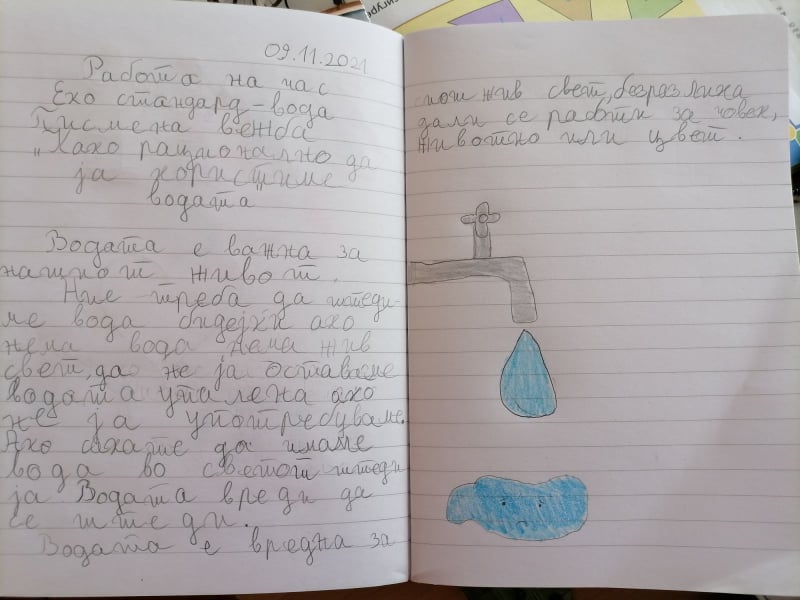 09.11.2021
Работа на час
Ехо стандард-вода
Писмена вежба
„Како рационално да
ја користиме
водата"
Водата е важна за
нашиот живот.
Ние треба да штеди-
ме вода бидејќи ако
нема вода нема жив
свет, да не ја оставаме
водата упалена ако
не ја употребуваме.
Ако сакате да имаме
вода во светот штеди
ја Водата вреди да
се штеди.
Водата е вредна за
жив свет, безразлика
дали се работи за човек,
животно или цвет.